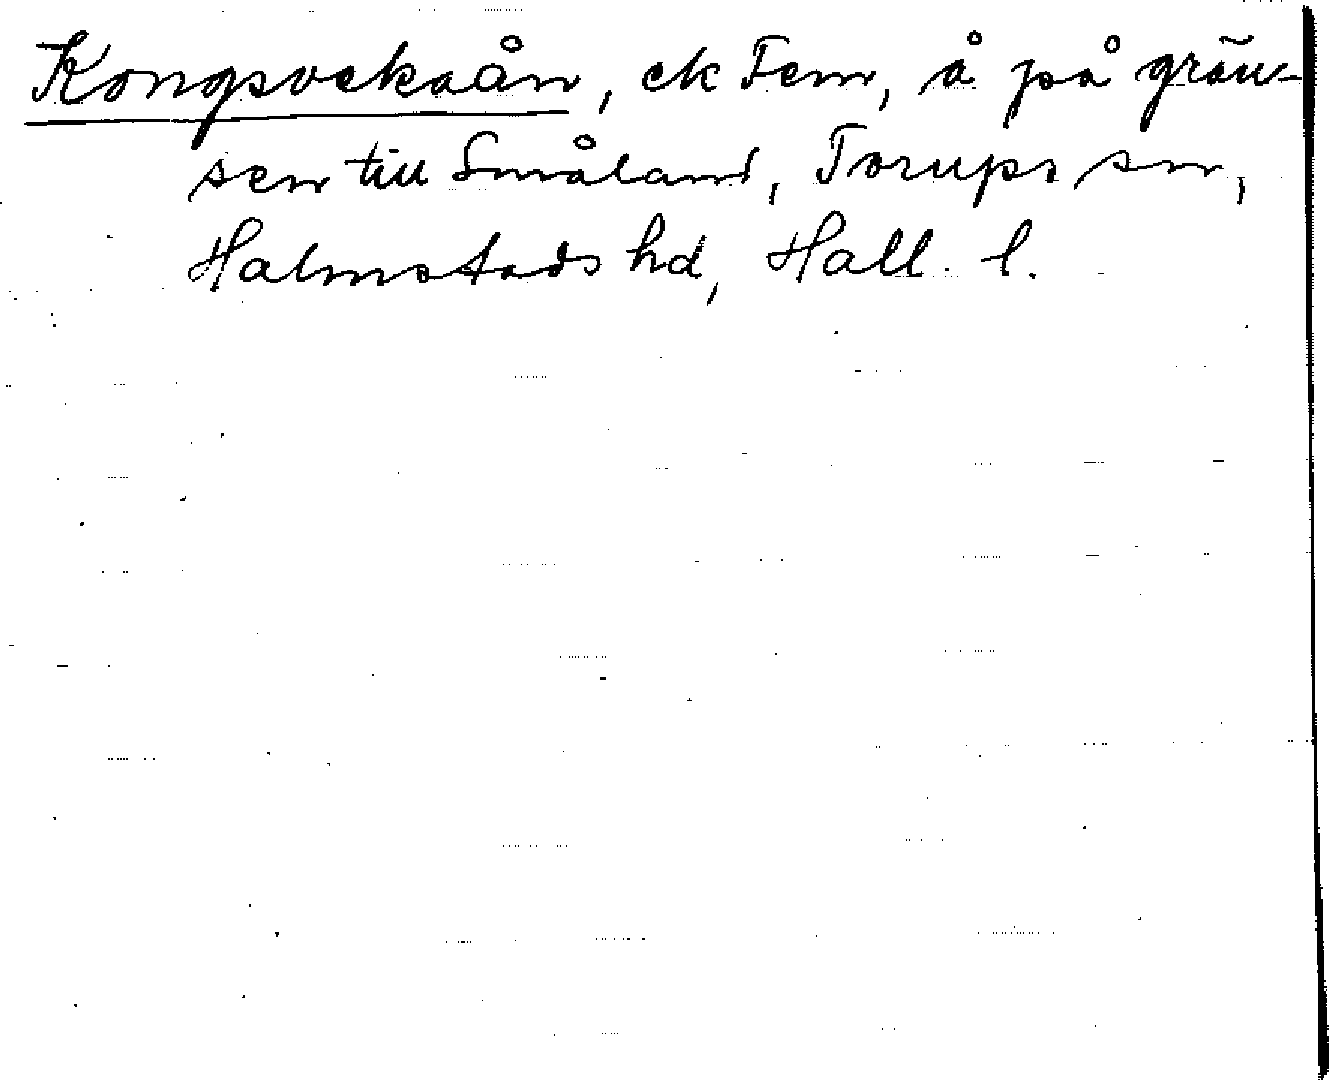 Kongsvekaån, ek Fem, å på grän-
sen till Småland, Torups sn,
Halmstads hd, Hall. l.